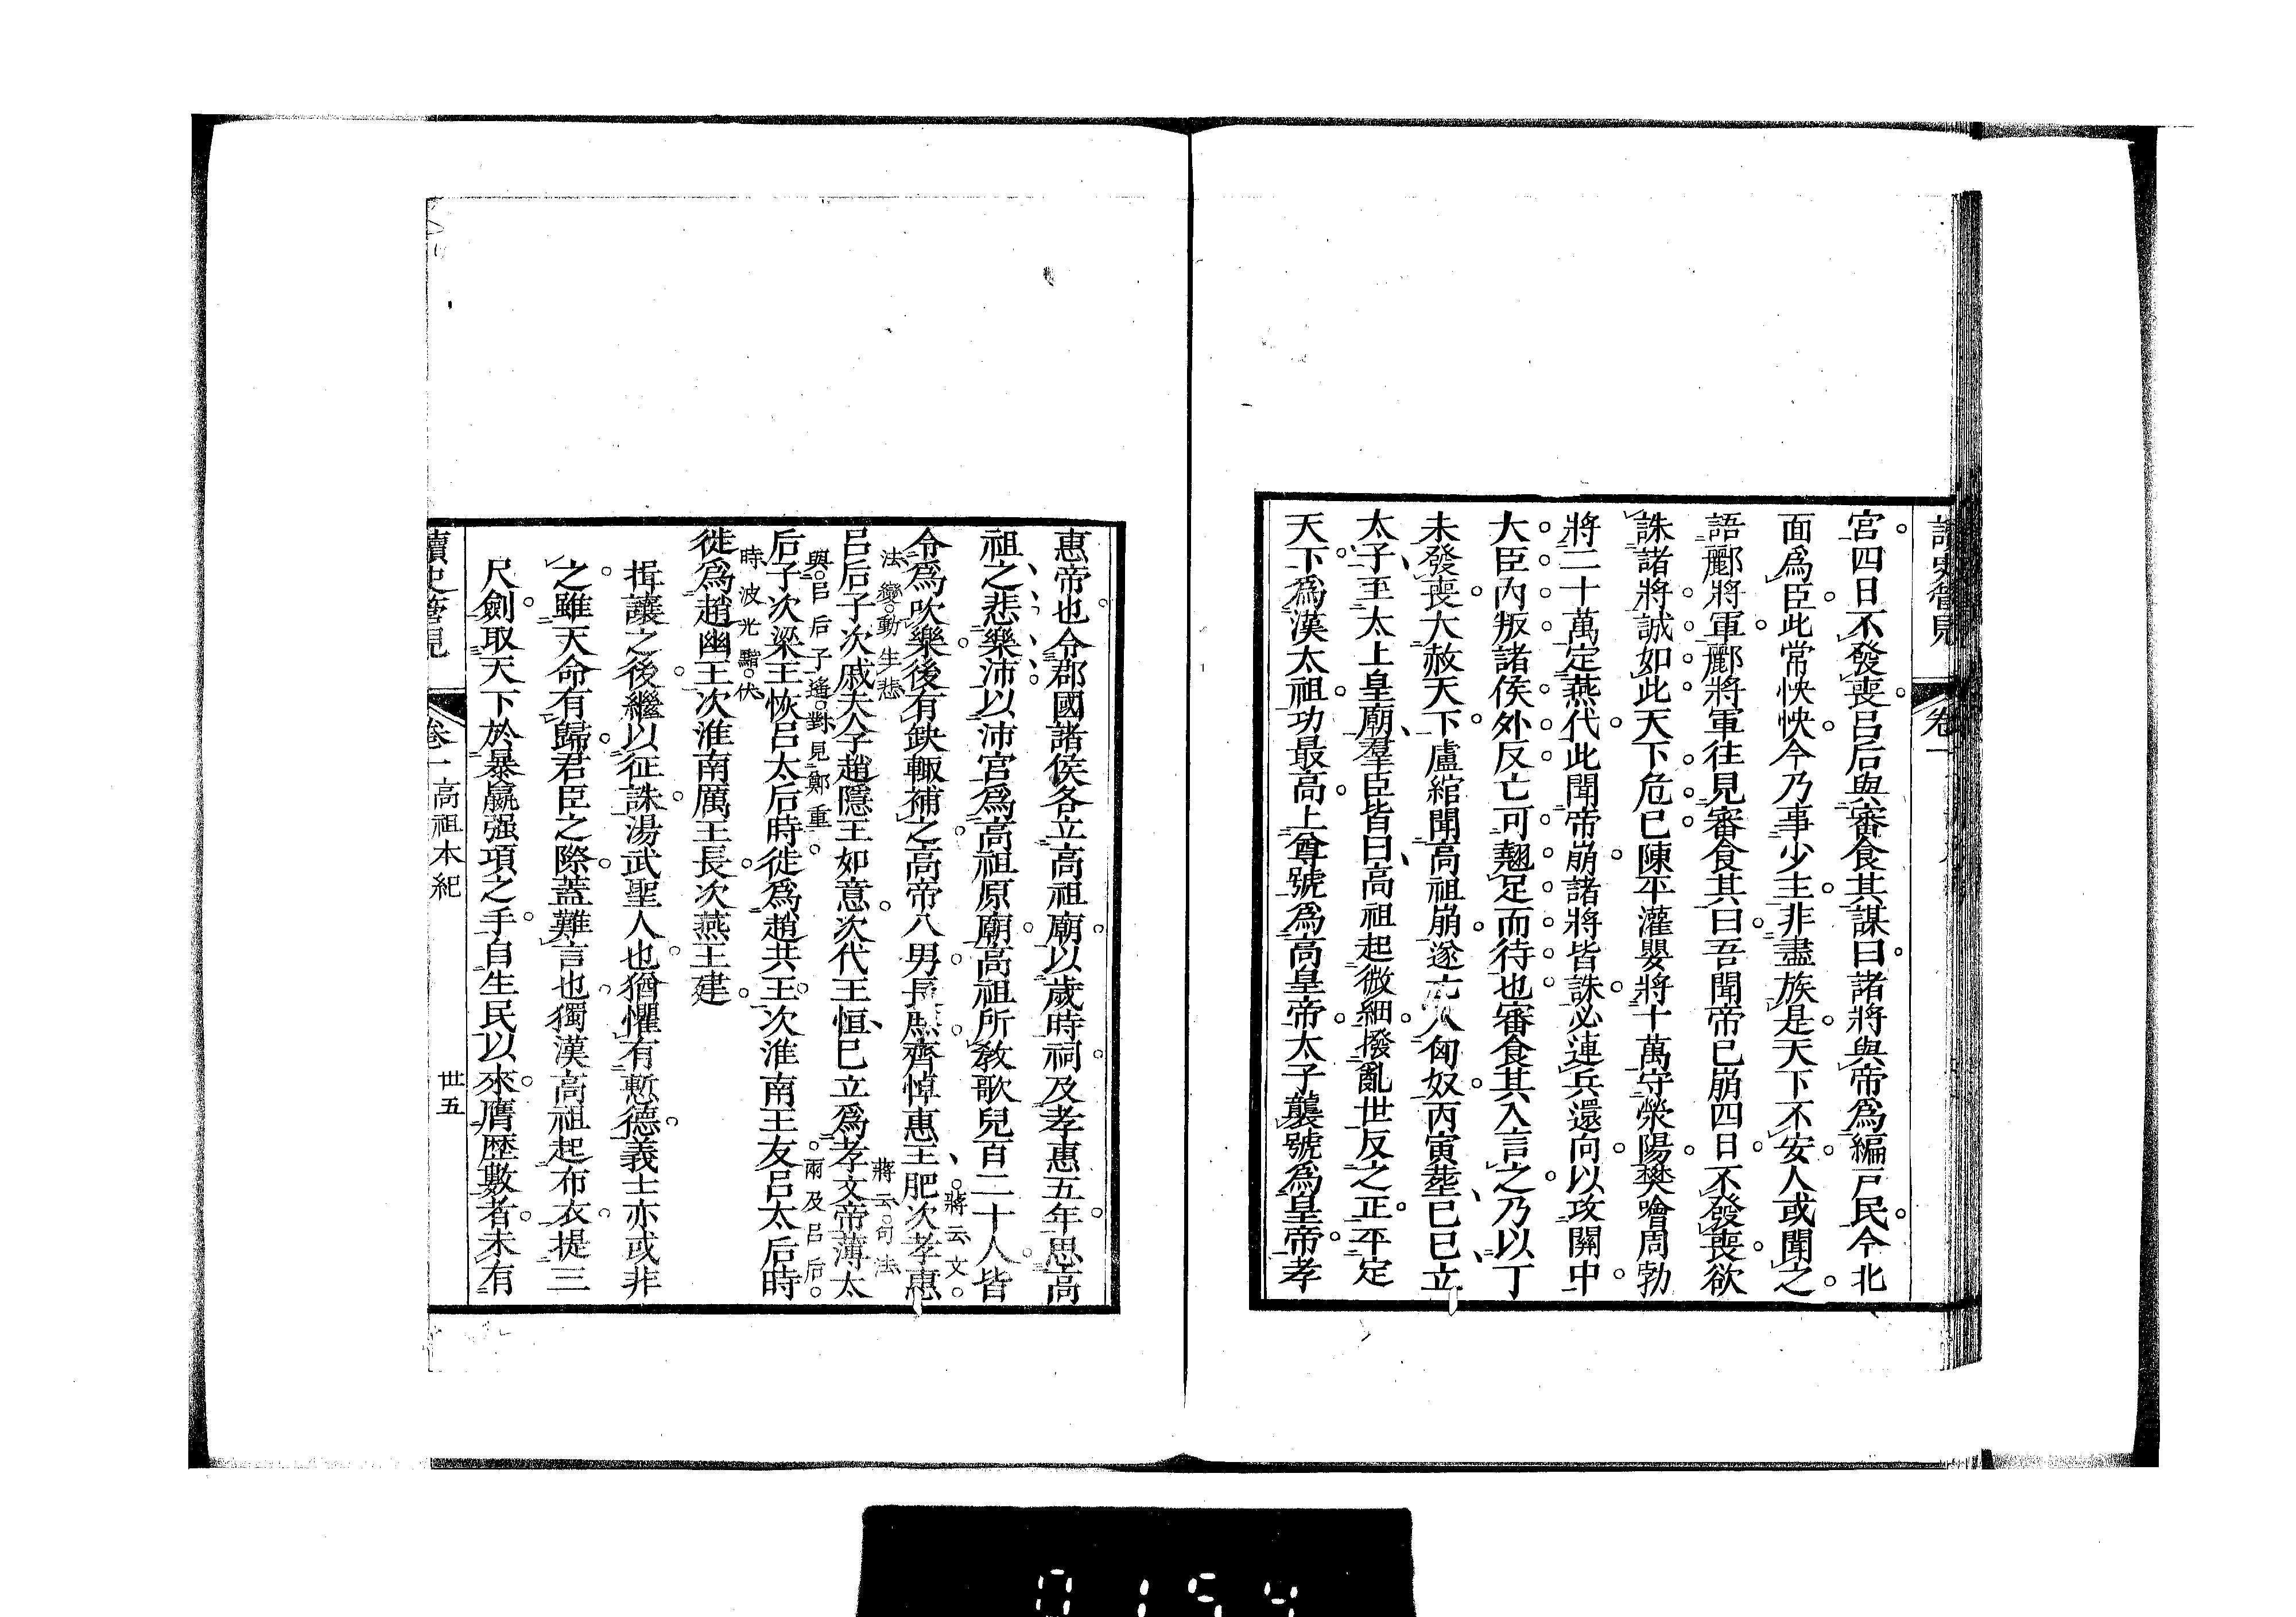 宮四日不發喪呂后與審食其謀曰諸將與帝爲編戸民今北
面爲臣此常怏怏今乃事少主非盡族是天下不安人或聞之
語酈將軍酈將軍往見審食其曰吾聞帝已崩四日不發喪欲
誅諸將誠如此天下危已陳平灌嬰將十萬守滎陽樊噲周勃
將二十萬定燕代此聞帝崩諸將皆誅必連兵還向以攻關中
大臣內叛諸侯外反亡可翹足而待也審食其入言之乃以丁
未發喪大赦天下盧綰聞高祖崩遂亡入匈奴丙寅葬已巳立
太子至太上皇廟羣臣皆曰高祖起微細撥亂世反之正平定
天下爲漢太祖功最高上尊號爲高皇帝太子襲號爲皇帝孝
卷一
惠帝也令郡國諸侯各立高祖廟以歲時祠及孝惠五年思高
祖之悲樂沛以沛宮爲高祖原廟高祖所教歌兒百二十人皆
令爲吹樂後有缺輒補之高帝八男長庶齊悼惠王肥次孝惠
蔣云文法變動生悲
呂后子次戚夫人子趙隱王如意次代王恒已立爲孝文帝薄太
蔣云句法與呂后子遙對見鄭重
后子次梁王恢呂太后時徙爲趙共王次淮南王友呂太后時
兩及呂后時波光黯伏
徙爲趙幽王次淮南厲王長次燕王建
揖讓之後繼以征誅湯武聖人也猶懼有慙德義士亦或非
之雖天命有歸君臣之際蓋難言也獨漢高祖起布衣提三
尺劍取天下於暴嬴强項之手自生民以來膺歴數者未有
讀史管見 卷一 高祖本紀 丗五
0154